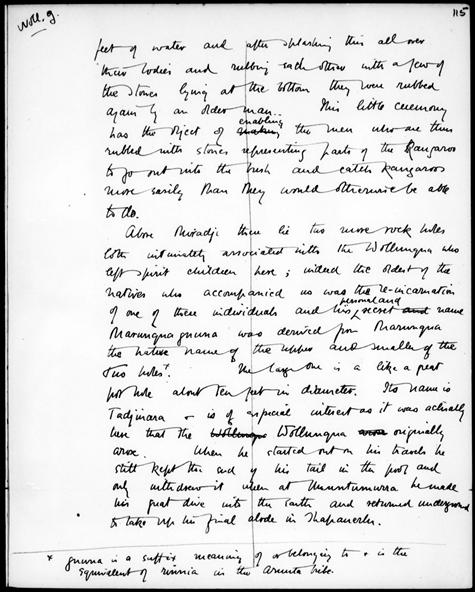 Woll. 9.
115
feet of water and after splashing this all over
their bodies and rubbing each other with a few of
the stones lying at the bottom they were rubbed
again by an older man. This little ceremony
enabling
has the object of making the men who are thus
rubbed with stones representing parts of the Kangaroo
to go out into the bush and catch kangaroos
more easily than they would otherwise be able
to do.
Above Miradji there lie two more rock holes
both intimately associated with the Wollunqua who
left spirit children here; indeed the oldest of the
natives who accompanied us was the re-incarnation
personal and
of one of these individuals and his secret and name
was derived from
the native name of the upper and smaller of the
two holes*. The larger one is a like a great
pot hole about ten feet in diameter. Its name is
Tadjinara + is of especial interest as it was actually
here that the Wollunqua Wollunqua arose originally
arose. When he started out on his travels he
still kept the end of his tail in the pool and
only withdrew it when at Ununtumurra he made
his great dive into the earth and returned underground
to take up his final abode in Thapauerlu.
* gnunna is a suffix meaning of or belonging to + is the
equivalent of rinnia in the Arunta tribe.